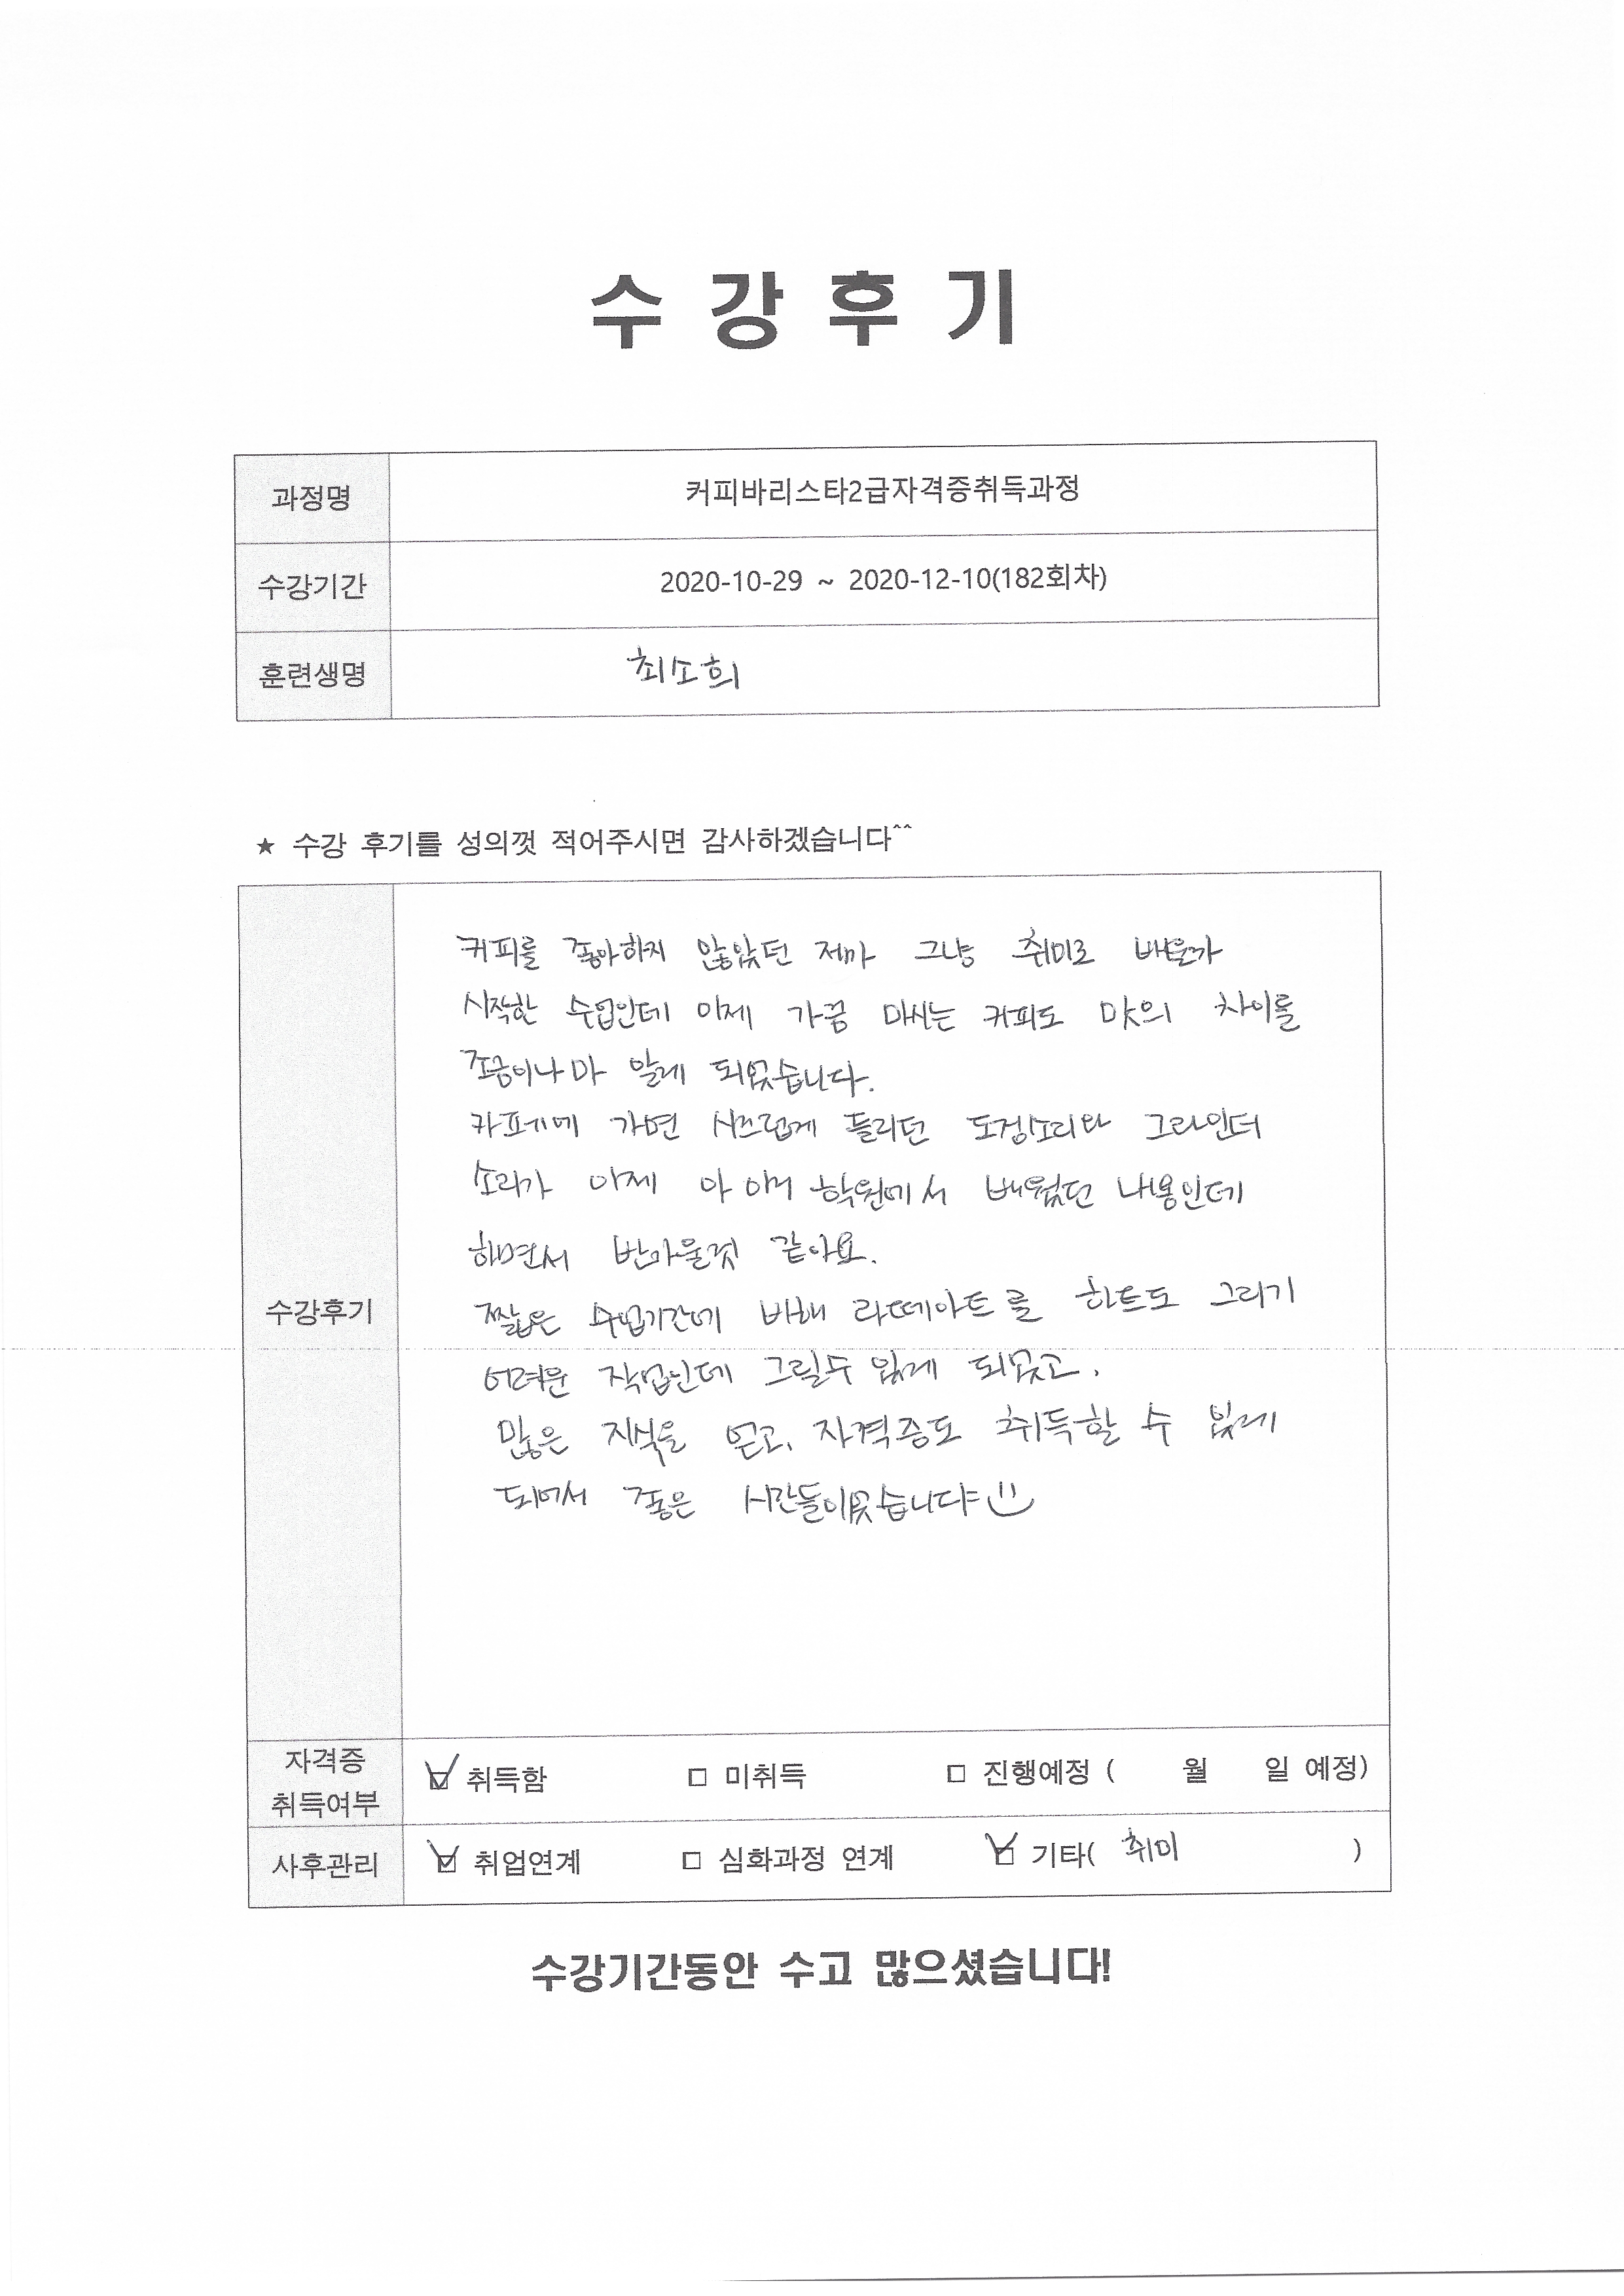 수강후기
과정명 커피바리스타2급자격증취득과정
수강기간 2020-10-29 ~ 2020-12-10(182회차)
훈련생명 최소희
★ 수강 후기를 성의껏 적어주시면 감사하겠습니다^^
수강후기
커피를 좋아하지 않았던 제가 그냥 취미로 배울까
시작한 수업인데 이제 가끔 마시는 커피도 맛의 차이를
조금이나마 알게 되었습니다.
카페에 가면 시끄럽게 들리던 도징소리와 그라인더
소리가 이제 아 이거 학원에서 배웠던 내용인데
하면서 반가울것 같아요.
짧은 수업기간에 비해 라떼아트를 하트도 그리기
어려운 작업인데 그릴수 있게 되었고.
많은 지식을 얻고, 자격증도 취득할 수 있게
되어서 좋은 시간들이었습니다
자격증 취득여부 ☑ 취득함 □ 미취득 □ 진행예정 ( 월 일 예정)
사후관리 ☑ 취업연계 □ 심화과정 연계 ☑ 기타( 취미 )
수강기간동안 수고 많으셨습니다!